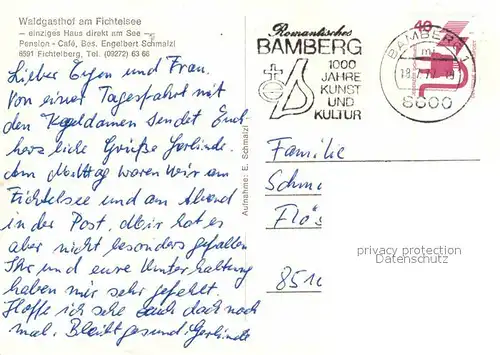 Waldgasthof am Fichtelsee
— einziges Haus direkt am See —
Pension - Café, Bes. Engelbert Schmalzl
8591 Fichtelberg, Tel. (09272) 63 66
Lieber und Frau.
Von einer Tagesfahrt mit
den Kegeldamen sendet Euch
herzliche Grüße Gerlinde.
Am Mittag waren wir am
Fichtelsee und am Abend
in der Post. Mir hat es
aber nicht besonders gefallen
Ihr und eure Unterhaltung
haben mir sehr gefehlt.
Hoffe ich sehe Euch doch noch
mal. Bleibt gesund! Gerlinde
Aufnahme: E. Schmalzl
Romantisches
BAMBERG
1000
JAHRE
KUNST
UND
KULTUR
BAMBERG 1
mi
8600
40
Familie
Schm
Flö's
851
privacy protection
Datenschutz